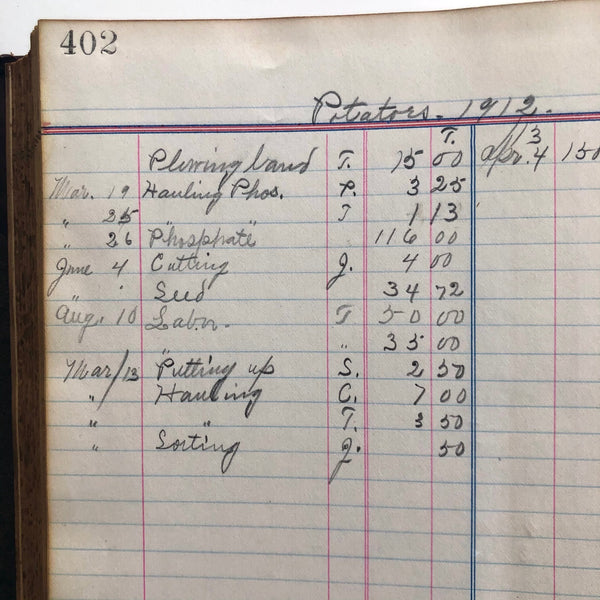 402
Potatoes. 1912.
T. 13
Plowing land T. 15 00 Apr. 4 150
Mar. 19 Hauling Phos. P. 3 25
" 25 " " T 1 13
" 26 Phosphate 116 00
June 4 Cutting J. 4 00
" " Seed 34 72
Aug. 10 Labor. T 50 00
" " 35 00
Mar/13 Putting up S. 2 50
" Hauling C. 7 00
" " T. 3 50
" Sorting J. 50